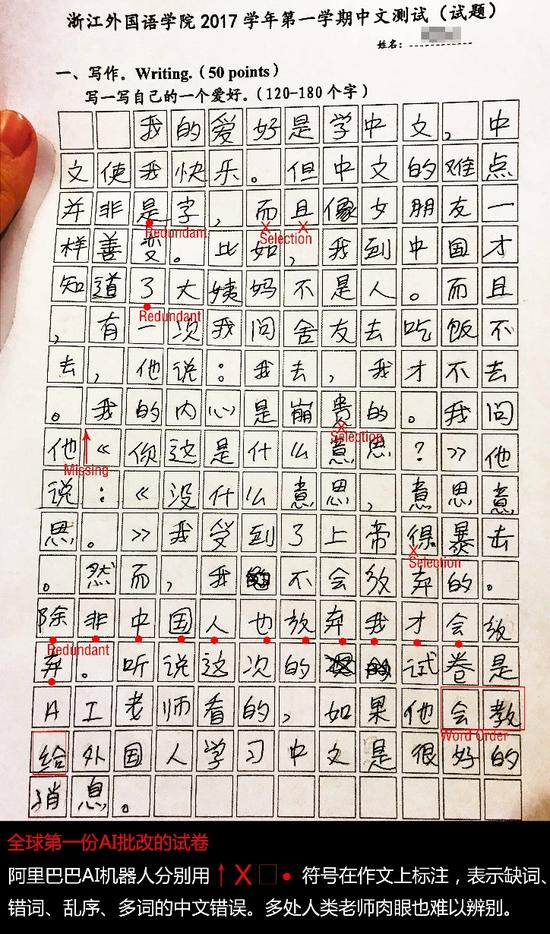 浙江外国语学院 2017 学年第一学期中文测试（试题）
姓名：
一、写作。Writing.（50 points）
写一写自己的一个爱好。（120-180 个字）
我的爱好是学中文，中
文使我快乐。但中文的难点
并非是字，而且像女朋友一
Redundant Selection
样善变。比如，我到中国才
知道了大姨妈不是人。而且
Redundant
，有一次我问舍友去吃饭不
去，他说：我去，我才不去
。我的内心是崩贵的。我问
Selection
他《你这是什么意思？》他
Missing
说：《没什么意思，意思意
思。》我受到了上帝得暴击
Selection
。然而，我不会放弃的。
除非中国人也放弃我才会放
Redundant
弃。听说这次的试卷是
AI老师看的，如果他会教
Word Order
给外国人学习中文是很好的
消息。
全球第一份AI批改的试卷
阿里巴巴AI机器人分别用↑X□● 符号在作文上标注，表示缺词、
错词、乱序、多词的中文错误。多处人类老师肉眼也难以辨别。